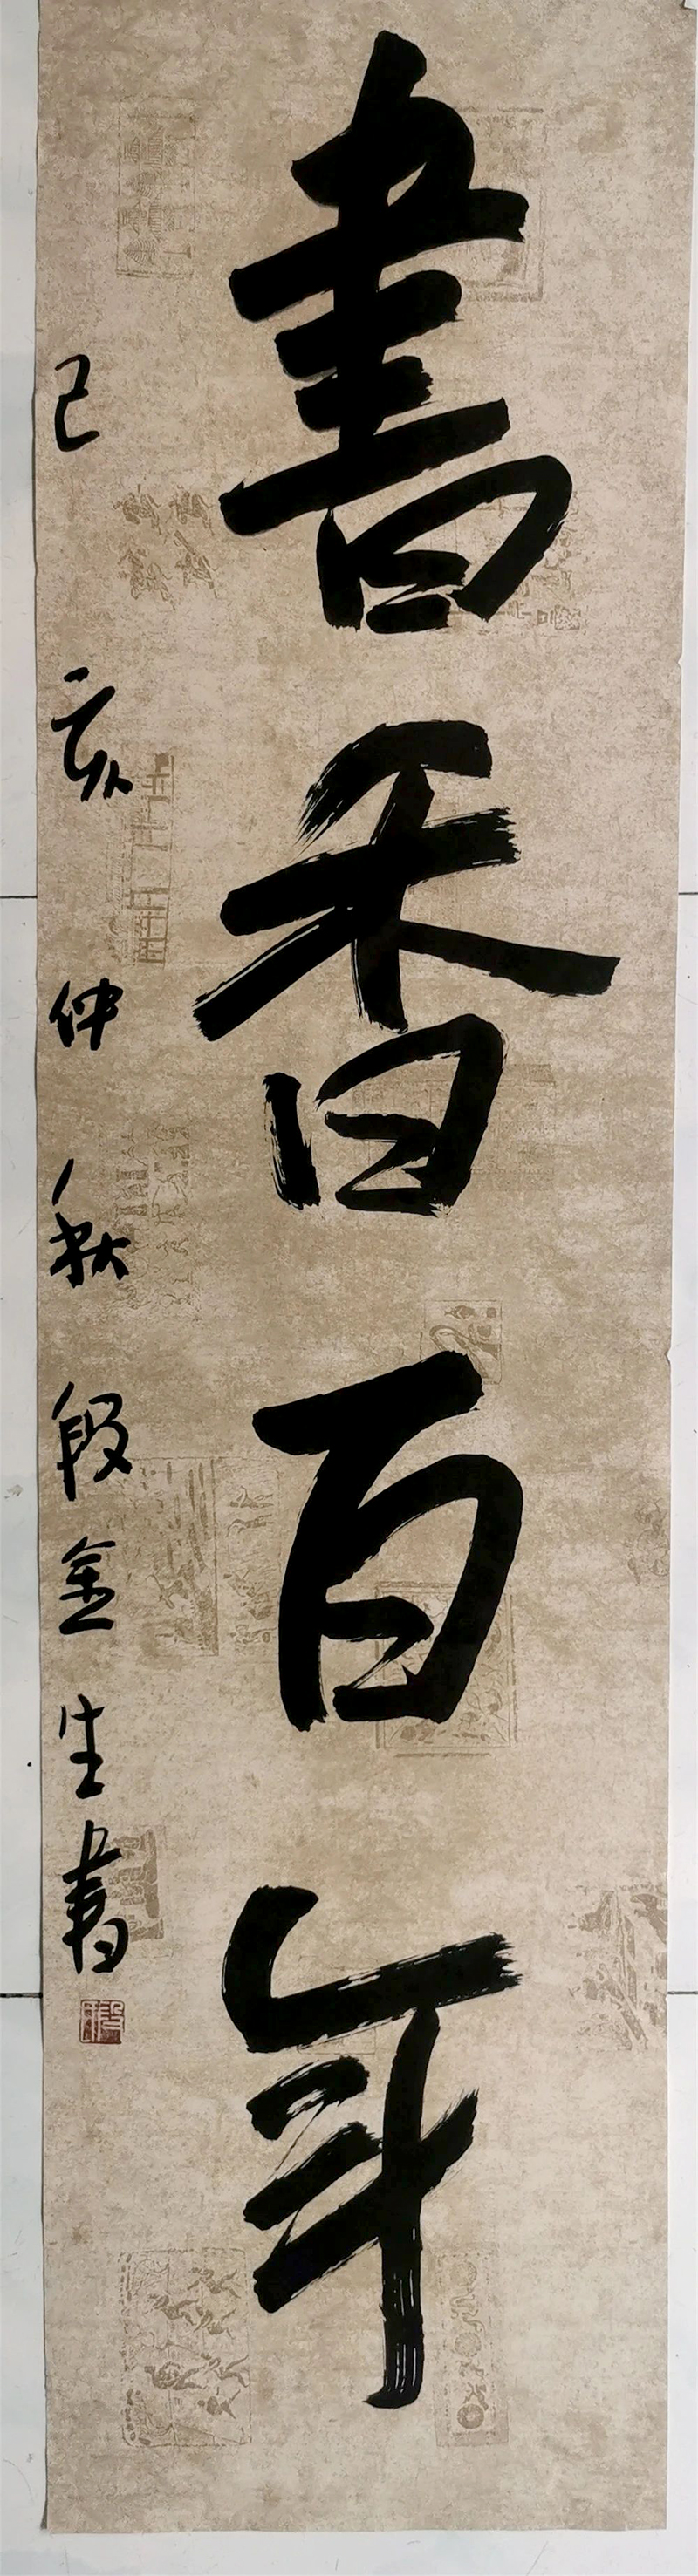 書香百年
己亥仲秋段金生書